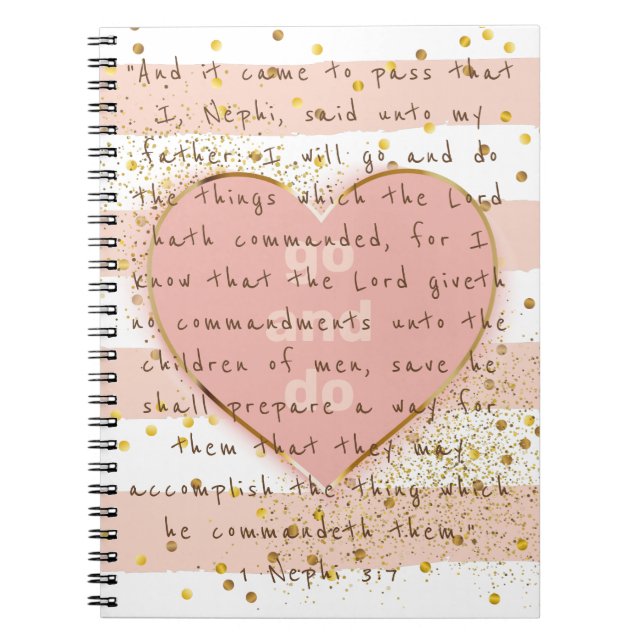 "And it came to pass that
I, Nephi, said unto my
father: I will go and do
the things which the Lord
hath commanded, for I
know that the Lord giveth
no commandments unto the
children of men, save he
shall prepare a way for
them that they may
accomplish the thing which
he commandeth them."
1 Nephi 3:7
go
and
do